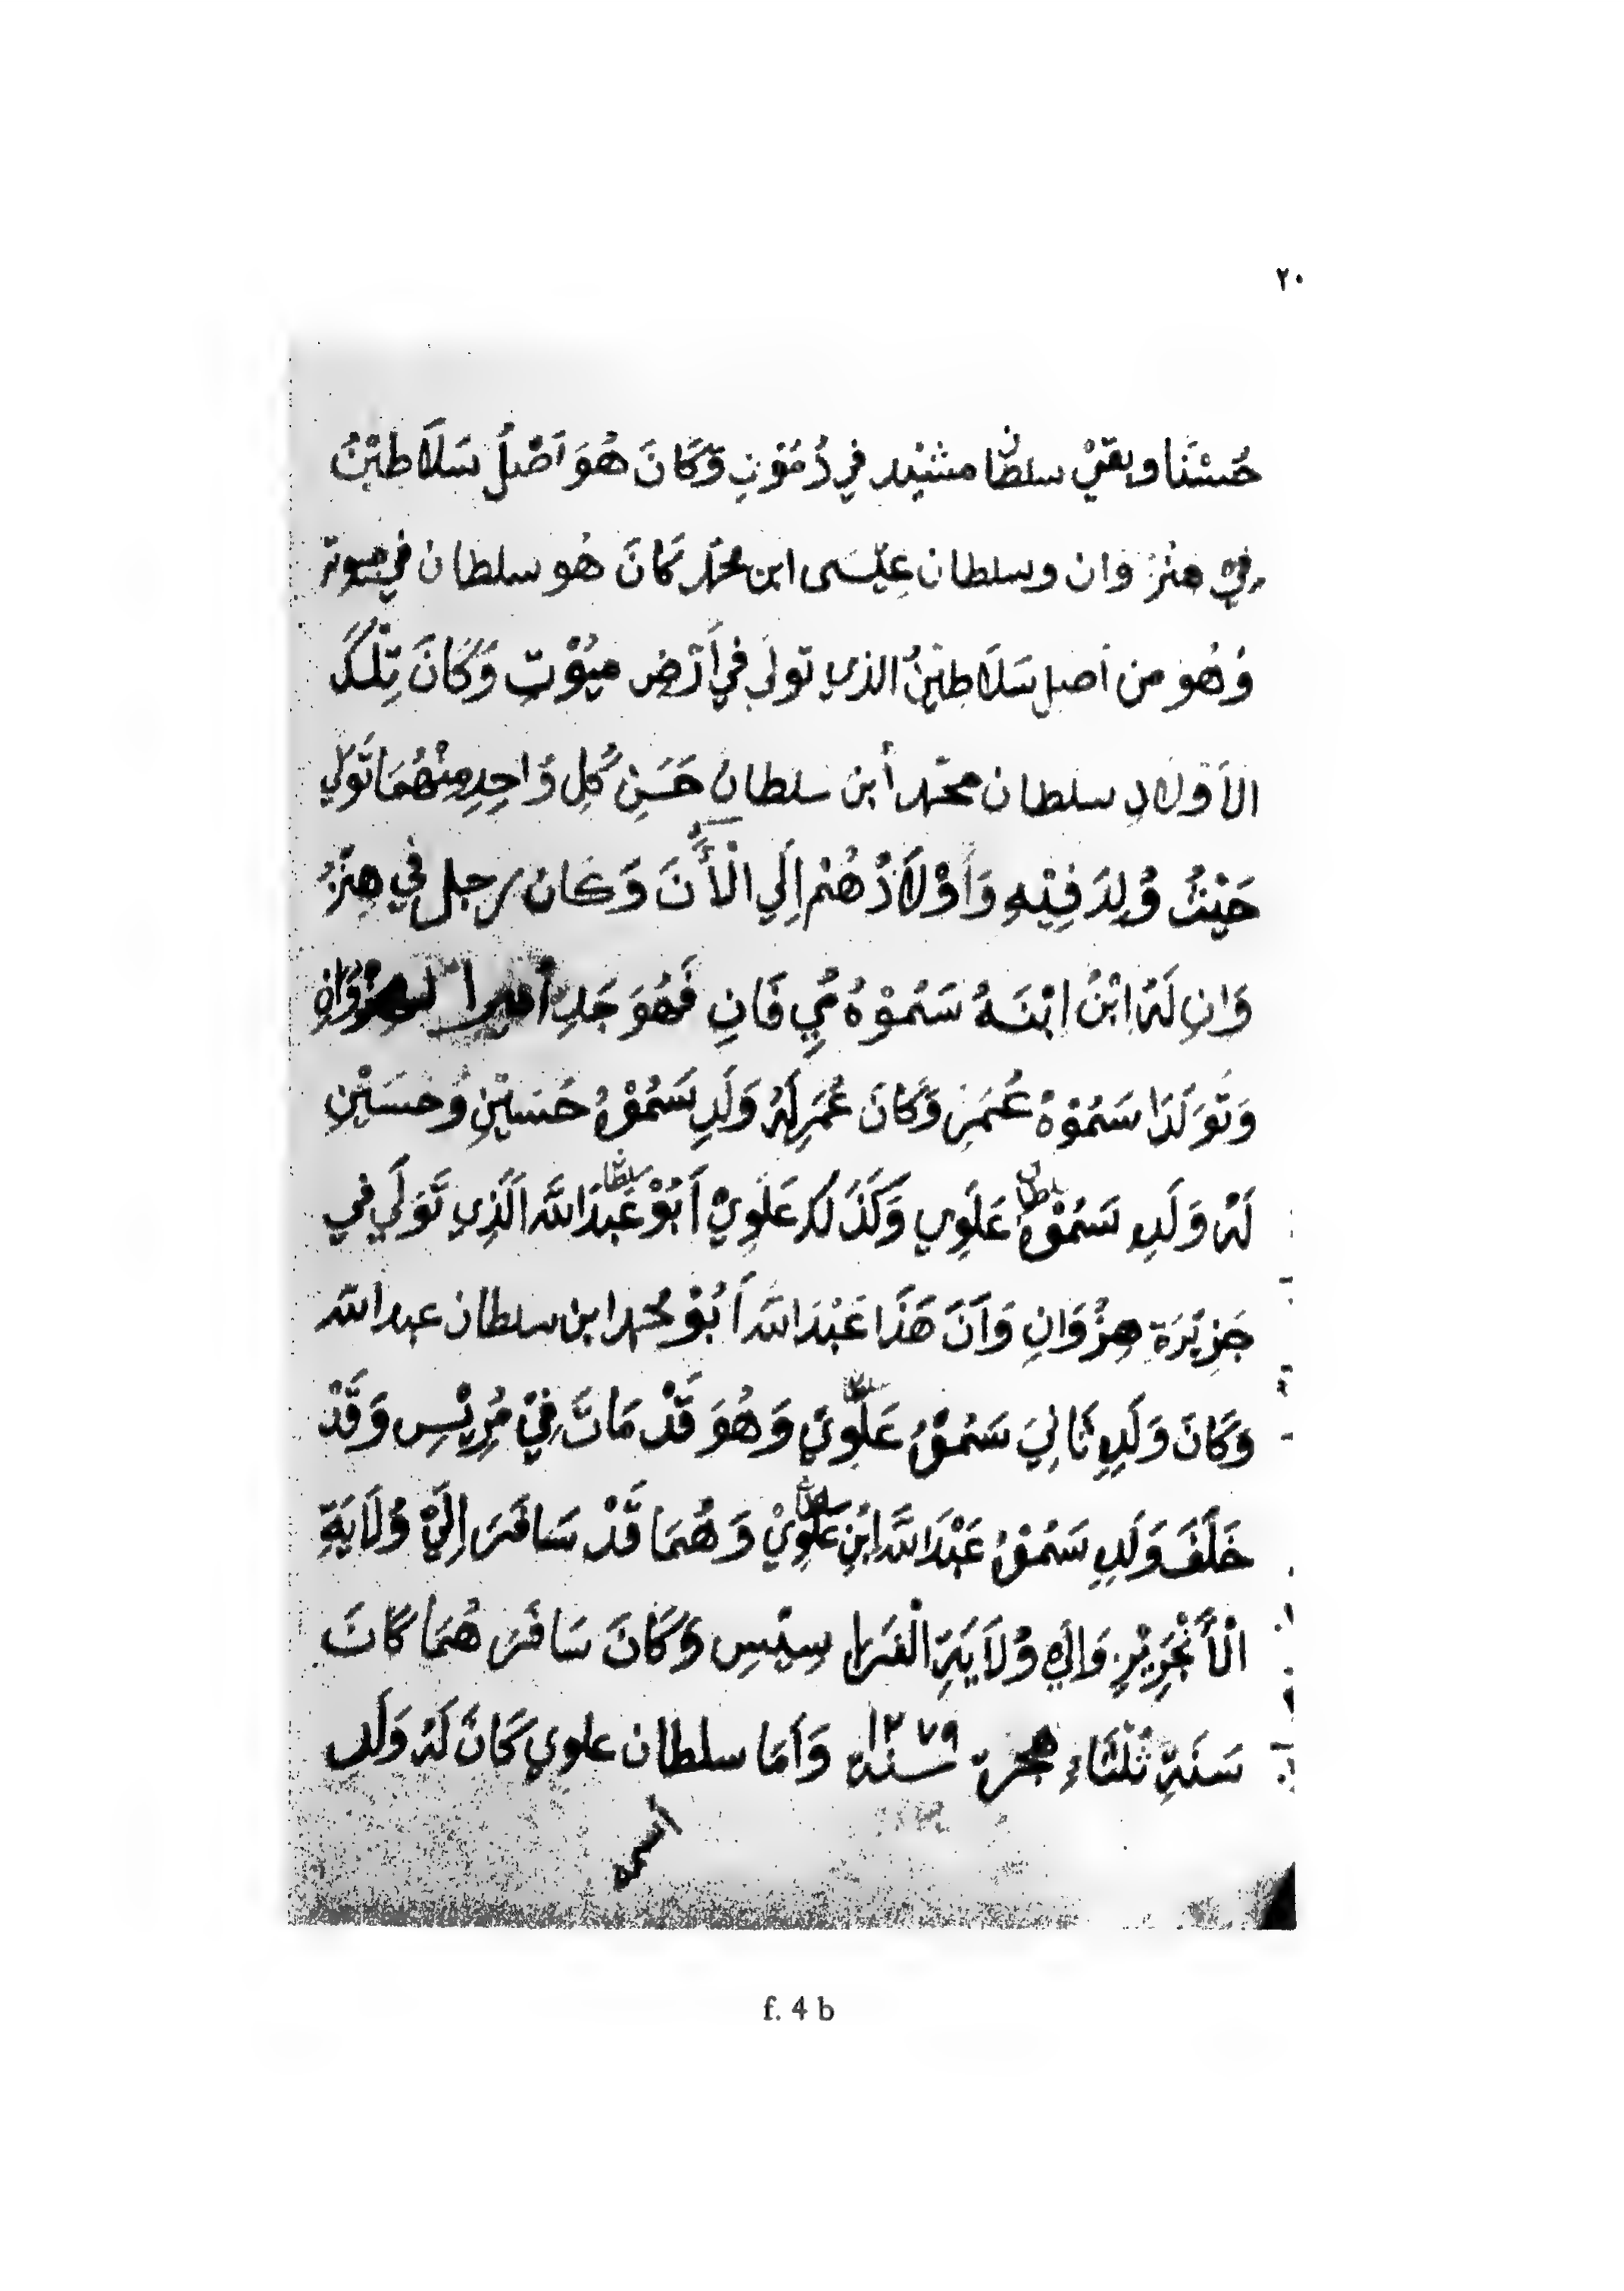 ٢٠
حُسْنًا وبقيْ سلطا مشنْيد في دُمُوْنِ وَكَانَ هُوَ اَصْلُ سَلَاطِيْنُ
فِيْ هِنْزُوَان وسلطان عِيْسَى ابن محمّد كَانَ هُو سلطان في ميوت
وُهُو من اصل سَلَاطِيْنُ الذي تولي في أَرْضِ مَيُوْتِ وَكَانَ تِلْكَ
الاَوْلَادِ سلطان محمّد أبن سلطان حَسَنِ كُلِ وَاحِدِ مِنْهُمَا تَوَلي
حَيْثُ وُلِدَ فِيْهِ وَاَوْلَادُهُمْ اِلَي الْأَنَ وَكان رجل في هِنْزُ
وَانِ لَهُ ابْنُ ابْنَهُ سَمُوْهُ فَانِ فَهُوَ جَدِ أميرا لهنزُوَانِ
وَتَوَلَدَا سَمُوْهُ عُمَرِ وَكَانَ عُمَرِ لَهُ وَلَدِ سَمُوْهُ حُسَيْنِ وَحُسَيْنِ
لَهُ وَلَدِ سَمُوْهُ سلطان عَلَوِي وَكَذَلكَ عَلَوِيْ اَبُوْ سلطان عَبْدَاللَّه اَلَذِي تَوَلَي في
جَزِيْرَة هِنْزُوَانِ وَاَنَ هَذَا عَبْدَاللَّه اَبُوْ محمد ابن سلطان عبدالله
وَكَانَ وَلَدِ ثَالِيَ سَمُوْهُ سلطان عَلَوِيَ وَهُوَ قَدْ مَاتَ فِيْ مُرِيْسِ وَقَدْ
خَلَفَ وَلَدِ سَمُوْهُ عَبْدَاللَّه ابْنِ سلطان عَلَوِيْ وَهُمَا قَدْ سَافَرَ اِلَيْ وُلَايَةِ
الْأَنْجَرِيْزِ وَالَيْ وُلَايَةِ الْفَرَا سِيْسِ وَكَانَ سَافَرَ هُمَا كَانَ
سَنَةِ ثَلْثَاءِ هجرة سنة ١٢٧٩ وَاَمَا سلطان علوي كَانَ لَهُ وَلَدِ
أسمه
f. 4 b